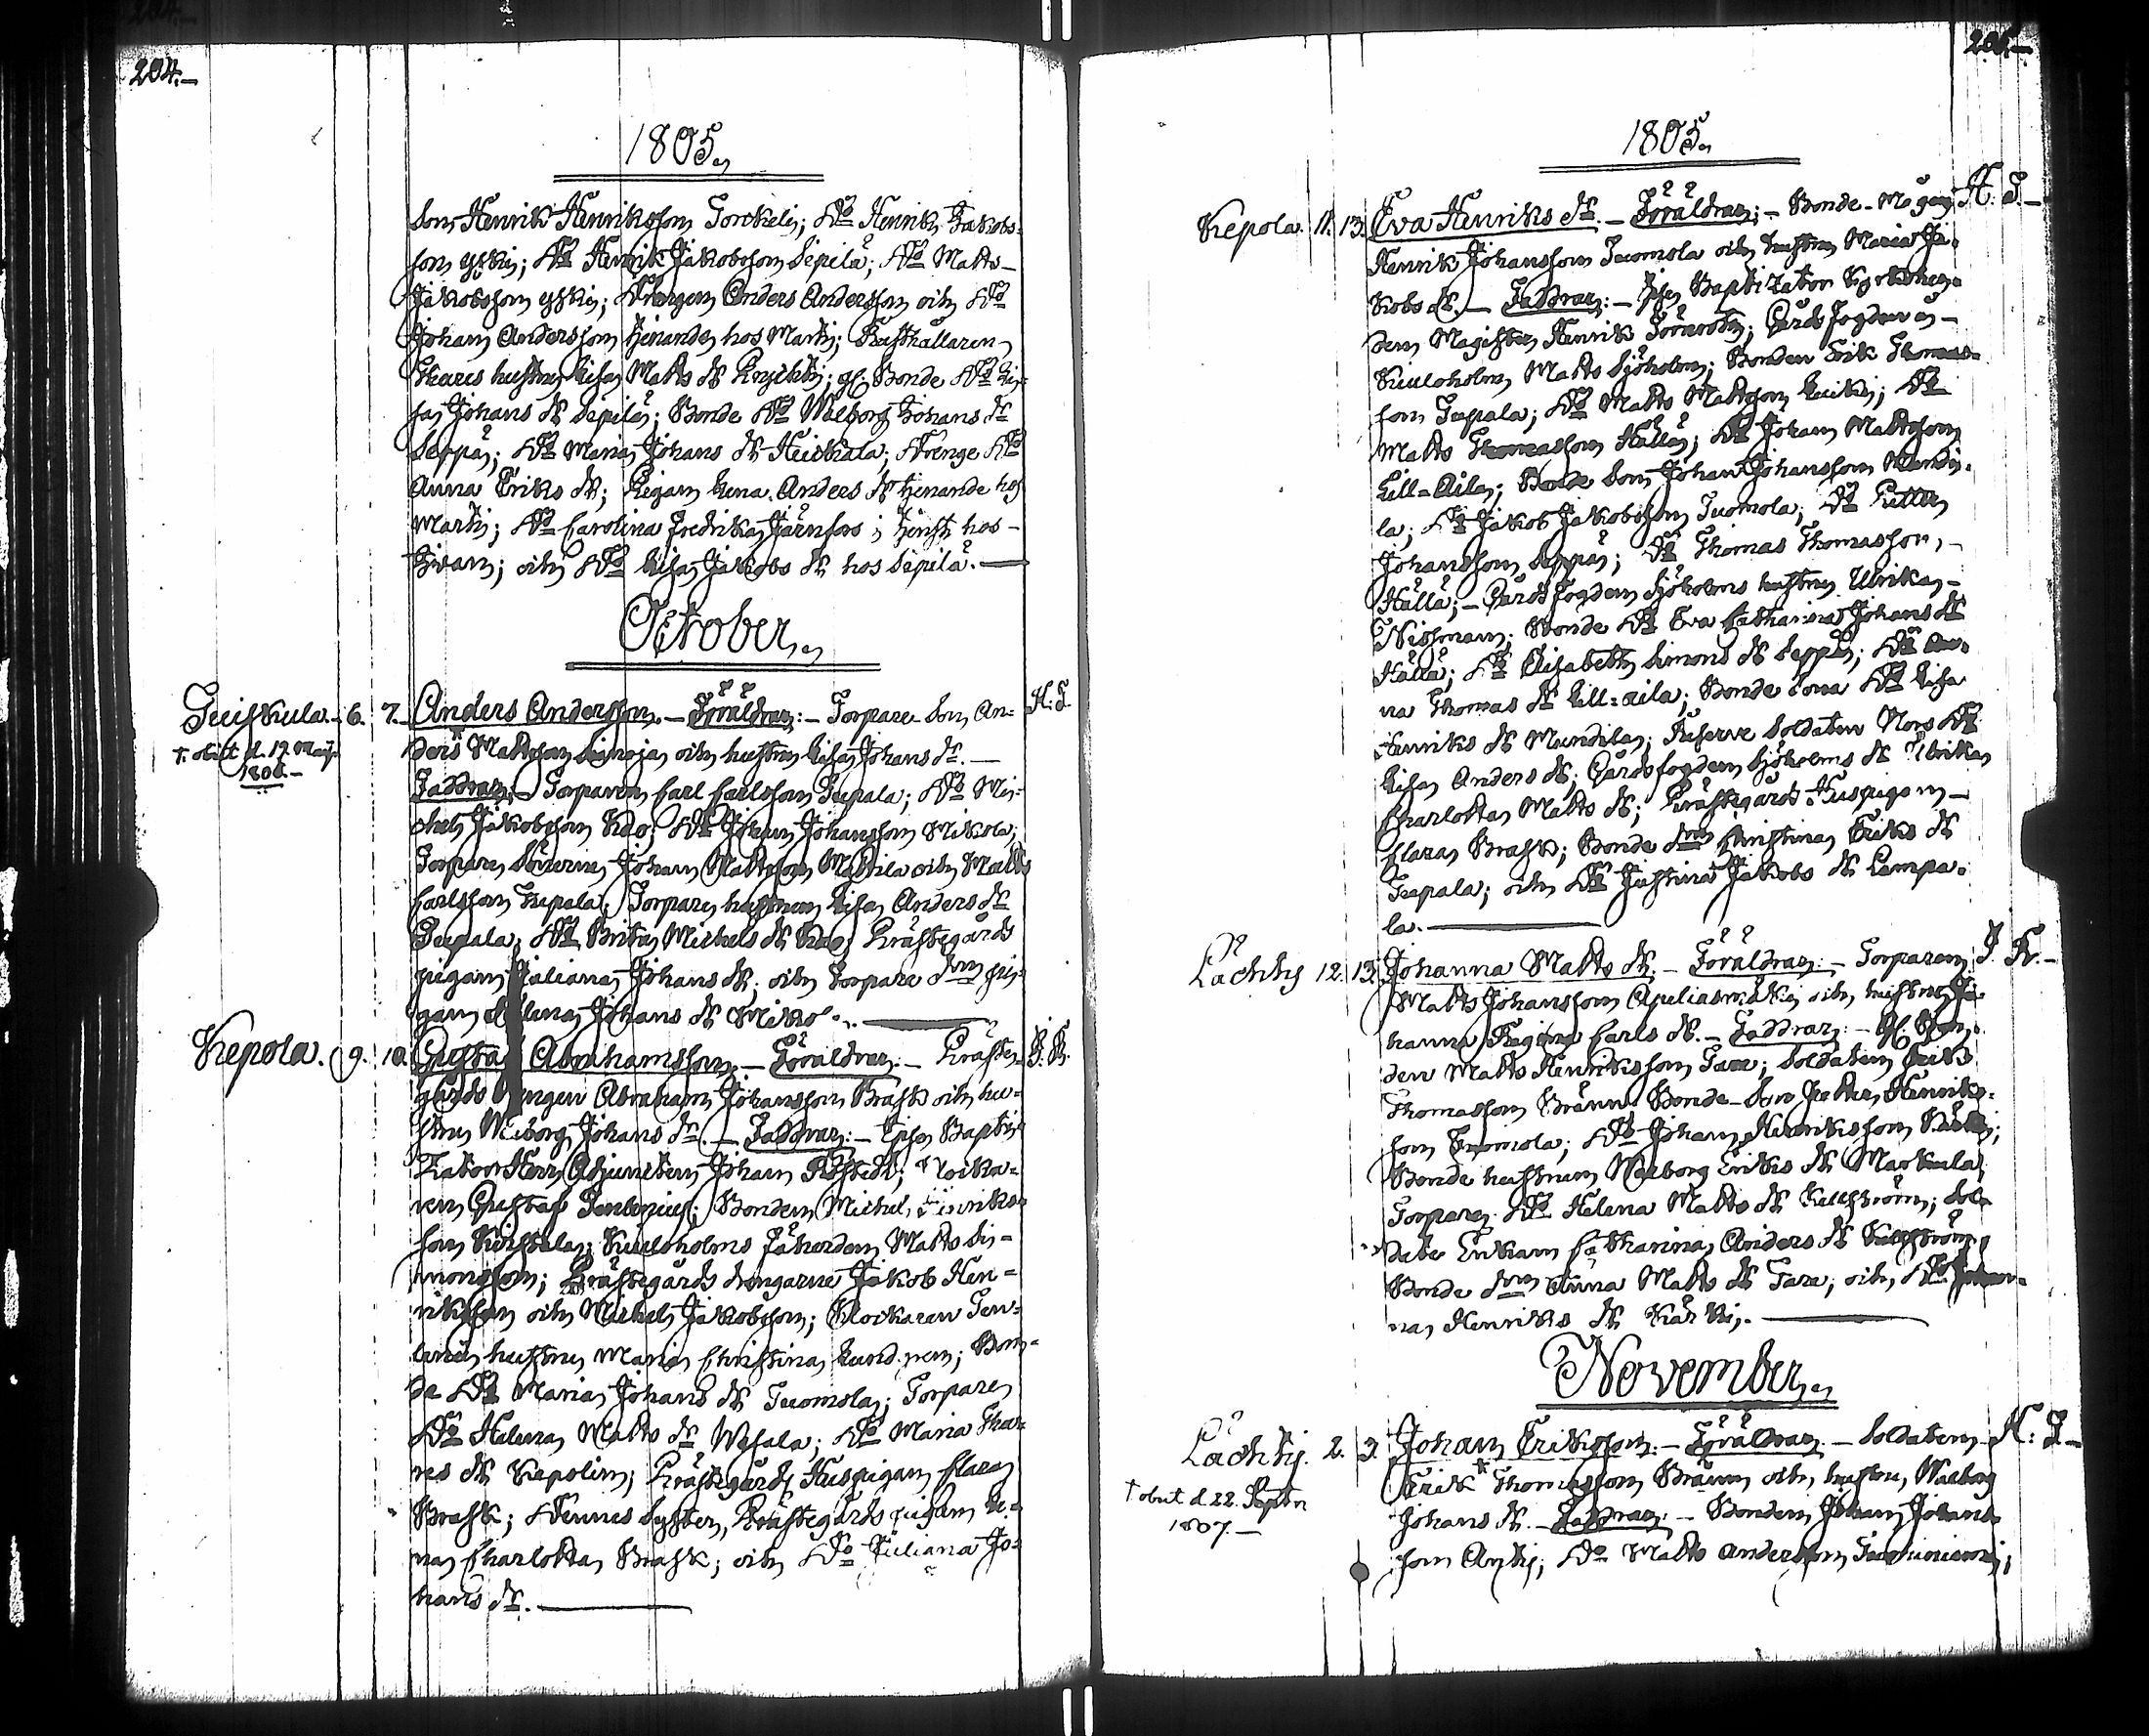 204.
1805.
Son Henrik Henriksson Torckeli; D:o Henrik Jakobs-
son Yski; D:o Henrik Jakobsson Sipilä; D:o Matts
Jakobsson Yski; Drengen Anders Andersson och D:o
Johan Andersson tjenande hos Marti; Rusthållaren
hustru Lisa Matts dr; gl. Bonde D:o Li-
sa Johans dr Sipilä; Bonde D:o Walborg Johans dr
Seppä; D:o Maria Johans dr Heickala; Drenge D:o
Anna Eriks dr; Pigan Lena Anders dr tjenande hos
Marti; D:o Carolina Fredrika Järnfors i tjenst hos
och D:o Lisa Jakobs dr hos Sipilä.
October
Tuiskula. 6. 7. Anders Andersson. Föräldrar: Torpare Son An- H. T.
† obiit d. 17 Maji
1806.
ders Mattsson och hustru Lisa Johans dr.
Faddrar: Torparen Carl Carlsson Tupala; D:o Mi-
chel Jakobsson Kao; D:o Johan Johansson Mikola;
Torpare Sönerne Johan Mattsson Mattila och Matts
Carlsson Tupala; Torpare hustrun Lisa Anders dr
Tupala; D:o Brita Michels dr Kao; Prästegårds
pigan Juliana Johans dr; och Torpare drn pi-
gan Helena Johans dr Mikola.
Kepola. 9. 10. Gustaf Abrahamsson. Föräldrar: Präste- J. R.
gårds Drengen Abraham Johansson Brask och hu-
stru Walborg Johans dr. Faddrar: Ipse Bapti-
zator Herr Adjuncten Johan; Klocka-
ren Gustaf Tenlenius; Bonden Michel Henriks-
son; Kuuloholms Matts Si-
monsson; Prästegårds drengarne Jakob Hen-
riksson och Michel Jakobsson; Klockaren Ten-
lenii hustru Maria Christina; Bon-
de D:o Maria Johans dr Tuomola; Torpare
D:o Helena Matts dr Wesala; D:o Maria Tho-
mas dr Kepolin; Prästegårds Huspigan Clara
Brask; Dennes Syster, Prästegårds pigan Le-
na Charlotta Brask; och D:o Juliana Jo-
hans dr.
205.
1805.
Kepola. 11. 13. Eva Henriks dr. Föräldrar: Bonde Mågen H. T.
Henrik Johansson Tuomola och hustru Maria Ja-
kobs dr. Faddrar: Ipse Baptizator Kyrkoher-
den Magister Henrik; Gårdsfogden å
Kuuloholm Matts Sjöholm; Bonden Erik Thomas-
son Tupala; D:o Matts Mattsson; D:o
Matts Thomasson Hälla; D:o Johan Mattsson
Lill-Aila; Bonde Son Johan Johansson Mundi-
la; D:o Jakob Jakobsson Tuomola; D:o Petter
Johansson Seppä; D:o Thomas Thomasson
Hälla; Gårdsfogden Sjöholms hustru Ulrika
Nissman; Bonde D:o Eva Catharina Johans dr
Hälla; D:o Elisabeth Simons dr Seppä; D:o An-
na Thomas dr Lill-Aila; Bonde Sona D:o Lisa
Henriks dr Mundila; Reserve Soldaten Nors D:o
Lisa Anders dr; Gårdsfogden Sjöholms dr Ulrika
Charlotta Matts dr; Prästegårds Huspigan
Clara Brask; Bonde drn Christina Eriks dr
Tupala; och D:o Justina Jakobs dr Lempa-
la.
Lachty 12. 13. Johanna Matts dr. Föräldrar: Torparen J. R.
Matts Johansson och hustru Jo-
hanna Regina Carls dr. Faddrar: gl. Bon-
den Matts Henriksson Tare; Soldaten Erik
Thomasson Brännn Bonde Son Petter Henriks-
son Tuomola; D:o Johan Henriksson Kärki;
Bonde hustrun Walborg Eriks dr Markula;
Torpare D:o Helena Matts dr Källström; Sol-
date Enkan Catharina Anders dr Källström;
Bonde drn Anna Matts dr Tare; och D:o Johan-
na Henriks dr Kärki.
November
Lachty. 2. 3. Johan Eriksson. Föräldrar: Soldaten H. T.
† obiit d. 22. Septbr
1807.
Erik Thomasson Brännn och hustru Walborg
Johans dr. Faddrar: Bonden Johan Johans-
son Anti; D:o Matts Andersson;